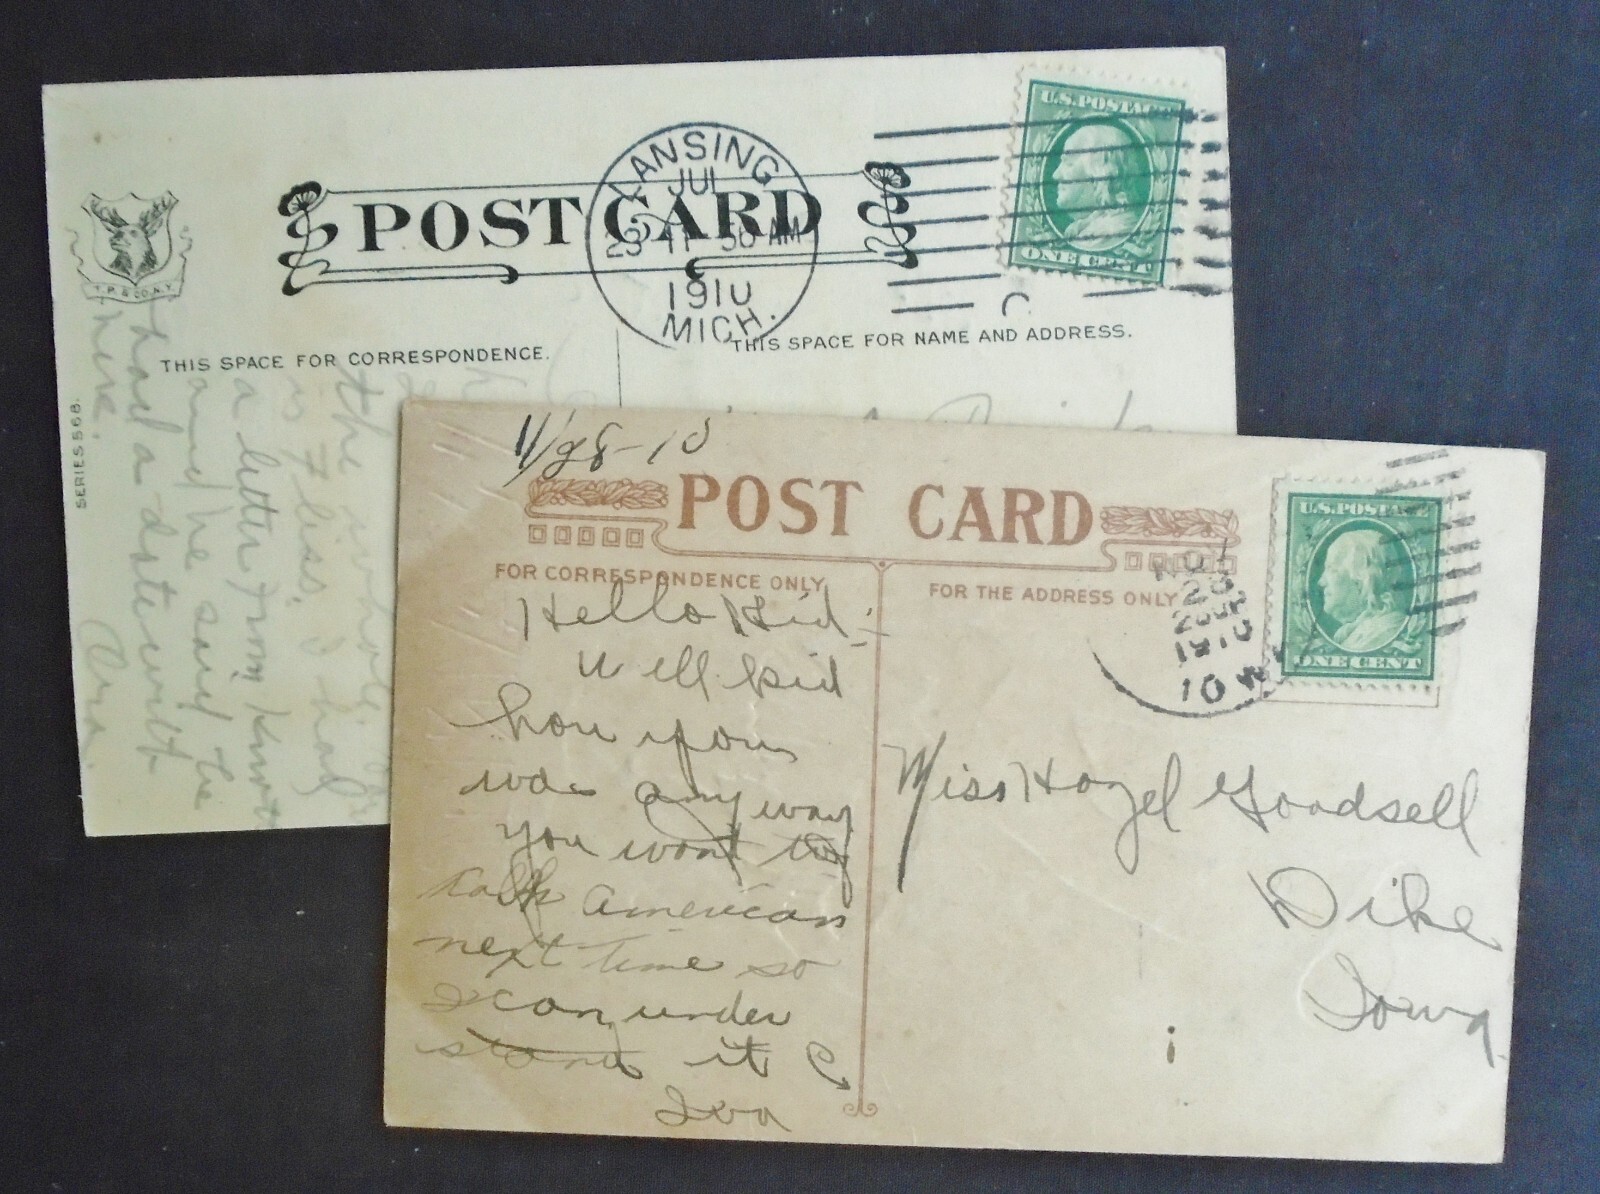 U.S. POSTAGE
ONE CENT
LANSING
JUL
23 11 30 AM
1910
MICH.
POST CARD
T. P. & CO. N.Y.
THIS SPACE FOR CORRESPONDENCE.
THIS SPACE FOR NAME AND ADDRESS.
SERIES 568.
the whole
is 7 lbs. I had
a letter from
and he said he
had a date with
here.
11/28-10
POST CARD
U.S. POSTAGE
ONE CENT
FOR CORRESPONDENCE ONLY
FOR THE ADDRESS ONLY
NOV
28
1910
IOWA
Hello Kid:-
Well kid
how you
was anyway
you want to
talk American
next time so
I can under
stand it
Iva
Miss Hazel Goodsell
Dike
Iowa.